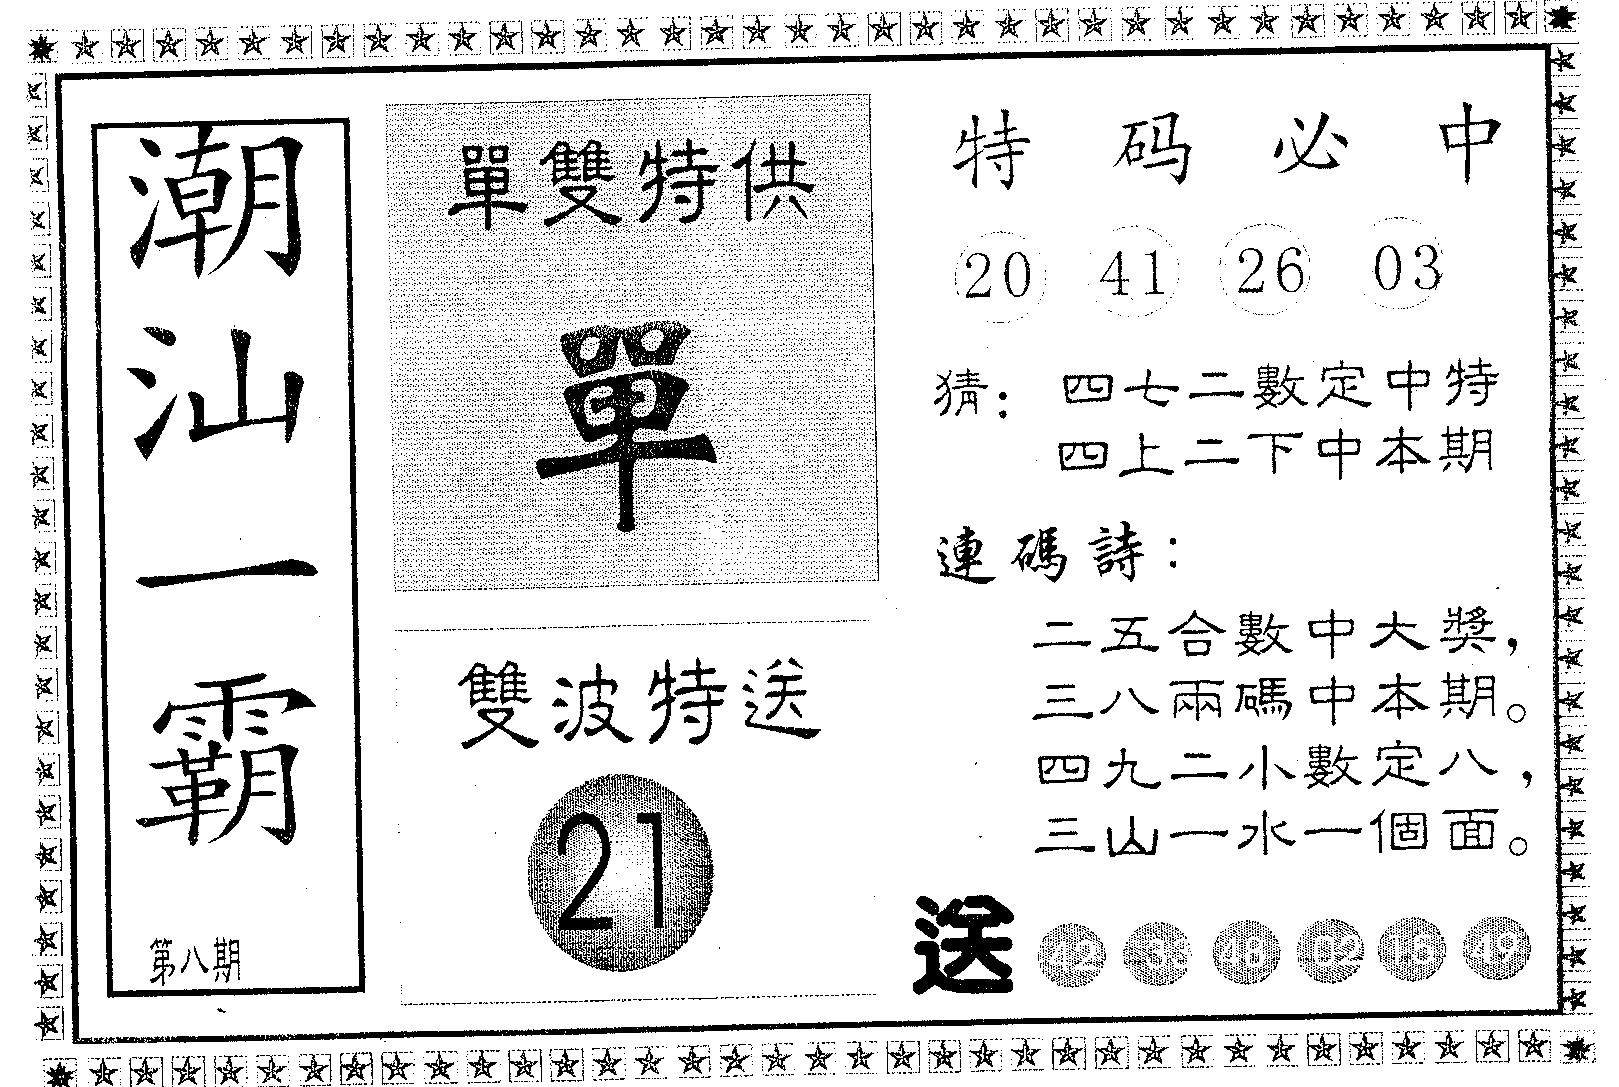 潮汕一霸
第八期
單雙特供
單
雙波特送
21
特码必中
20 41 26 03
猜：四七二數定中特
四上二下中本期
連碼詩：
二五合數中大獎，
三八兩碼中本期。
四九二小數定八，
三山一水一個面。
送 42 48 02 16 49